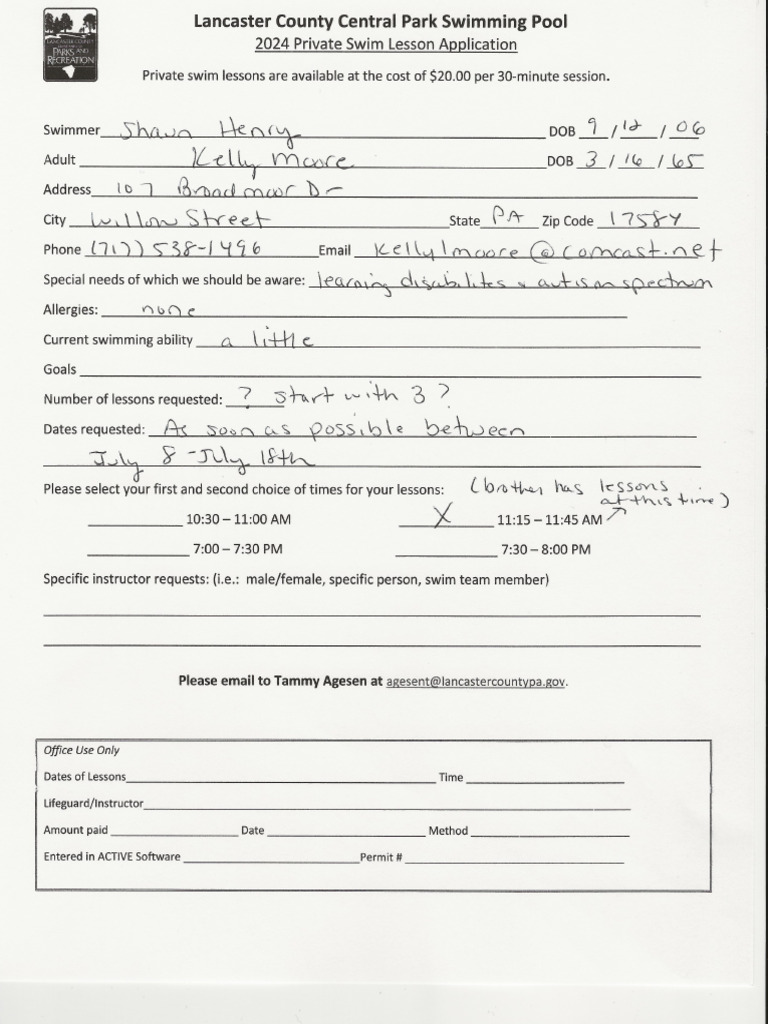 LANCASTER COUNTY
PARKS AND
RECREATION
Lancaster County Central Park Swimming Pool
2024 Private Swim Lesson Application
Private swim lessons are available at the cost of $20.00 per 30-minute session.
Swimmer Shawn Henry DOB 9/12/06
Adult Kelly Moore DOB 3/16/65
Address 107 Broadmoor Dr
City Willow Street State PA Zip Code 17584
Phone (717) 538-1496 Email kellylmoore@comcast.net
Special needs of which we should be aware: learning disabilites & autism spectrum
Allergies: none
Current swimming ability a little
Goals
Number of lessons requested: ? start with 3?
Dates requested: As soon as possible between
July 8 - July 18th
Please select your first and second choice of times for your lessons: (brother has lessons
at this time)
10:30 – 11:00 AM X 11:15 – 11:45 AM
7:00 – 7:30 PM 7:30 – 8:00 PM
Specific instructor requests: (i.e.: male/female, specific person, swim team member)
Please email to Tammy Agesen at agesent@lancastercountypa.gov.
Office Use Only
Dates of Lessons Time
Lifeguard/Instructor
Amount paid Date Method
Entered in ACTIVE Software Permit #